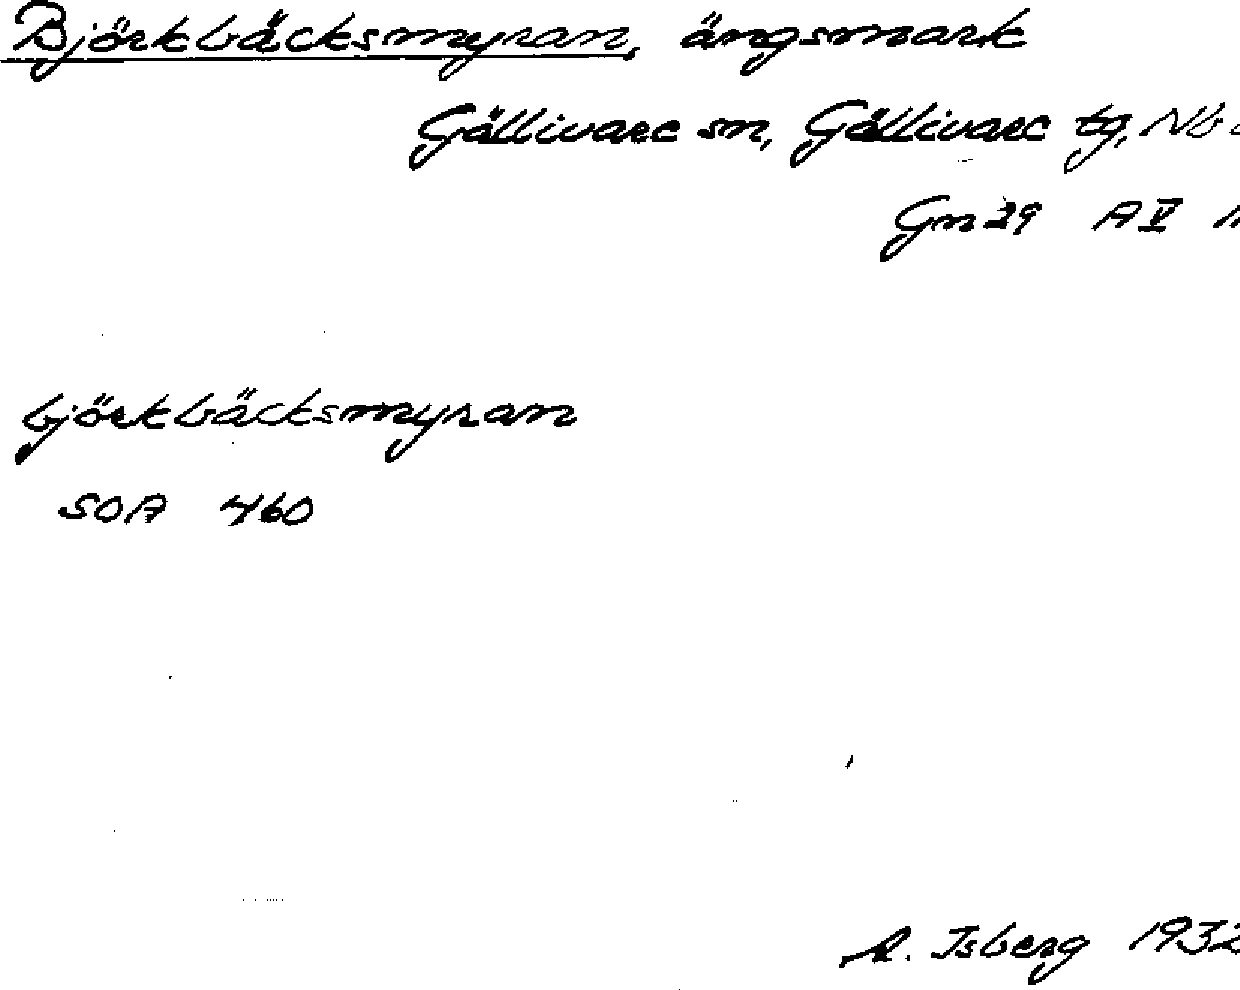 Björkbäcksmyran, ängsmark
Gällivare sn, Gällivare tg, Nb
Gm 29 A V
björkbäcksmyran
SOA 460
A. Isberg 1932